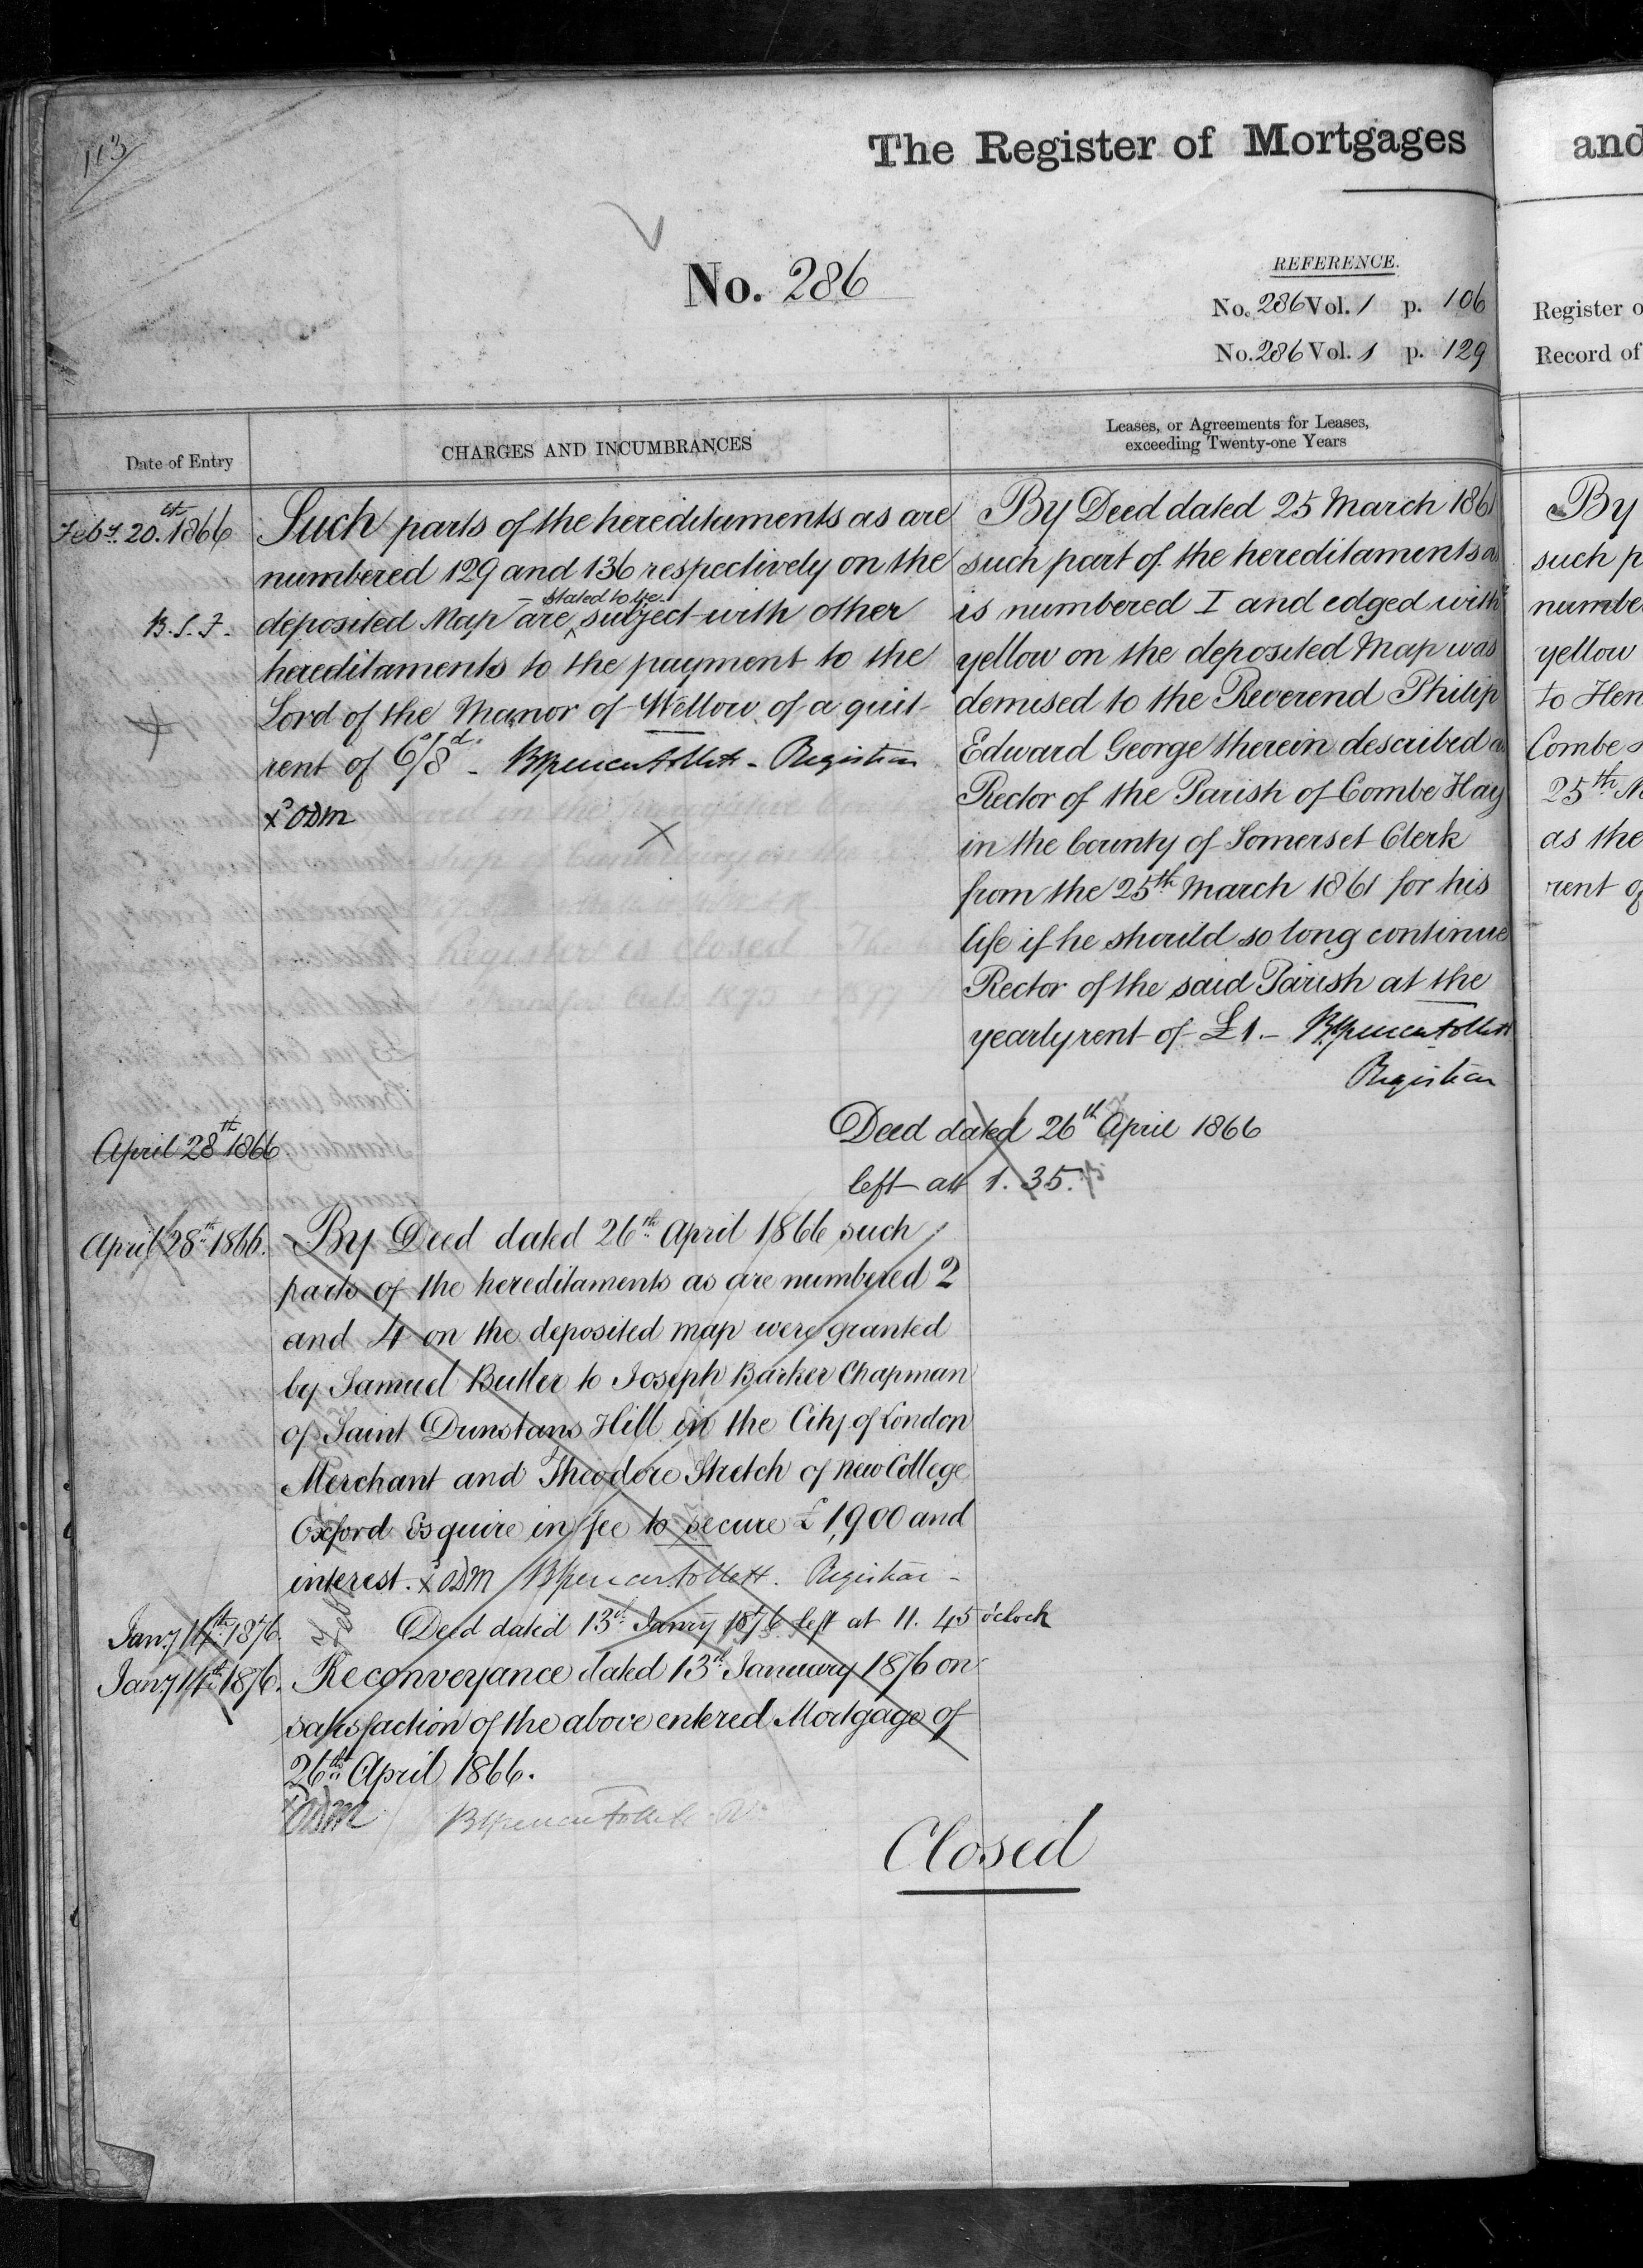 113
The Register of Mortgages
and
No. 286
REFERENCE.
No. 286 Vol. 1 p. 106
No. 286 Vol. 1 p. 129
Register o
Record of
Date of Entry
CHARGES AND INCUMBRANCES
Leases, or Agreements for Leases,
exceeding Twenty-one Years
Feby. 20th 1866
B.S.F.
Such parts of the hereditaments as are
numbered 129 and 136 respectively on the
deposited Map are stated to be subject with other
hereditaments to the payment to the
Lord of the Manor of Wellow of a quit
rent of 6s/8d. - BSpencerFollett - Registrar
x ODM
By Deed dated 25 March 1861
such part of the hereditaments as
is numbered I and edged with
yellow on the deposited Map was
demised to the Reverend Philip
Edward George therein described as
Rector of the Parish of Combe Hay
in the County of Somerset Clerk
from the 25th March 1861 for his
life if he should so long continue
Rector of the said Parish at the
yearly rent of £1. - BSpencerFollett
Registrar
By
such p
numbe
yellow
to Hen
Combe
25th M
as the
rent of
Register is closed
April 28th 1866
Deed dated 26th April 1866
left at 1.35.
April 28th 1866.
By Deed dated 26th April 1866 such
parts of the hereditaments as are numbered 2
and 4 on the deposited map were granted
by Samuel Butler to Joseph Barker Chapman
of Saint Dunstans Hill in the City of London
Merchant and Theodore Stretch of New College
Oxford Esquire in fee to secure £1,900 and
interest. x ODM BSpencerFollett. Registrar -
Jany 14th 1876.
Deed dated 13th Janry 1876 left at 11.45 o'clock
Jany 14th 1876.
Reconveyance dated 13th January 1876 on
satisfaction of the above entered Mortgage of
26th April 1866.
x ODM BSpencerFollett
Closed